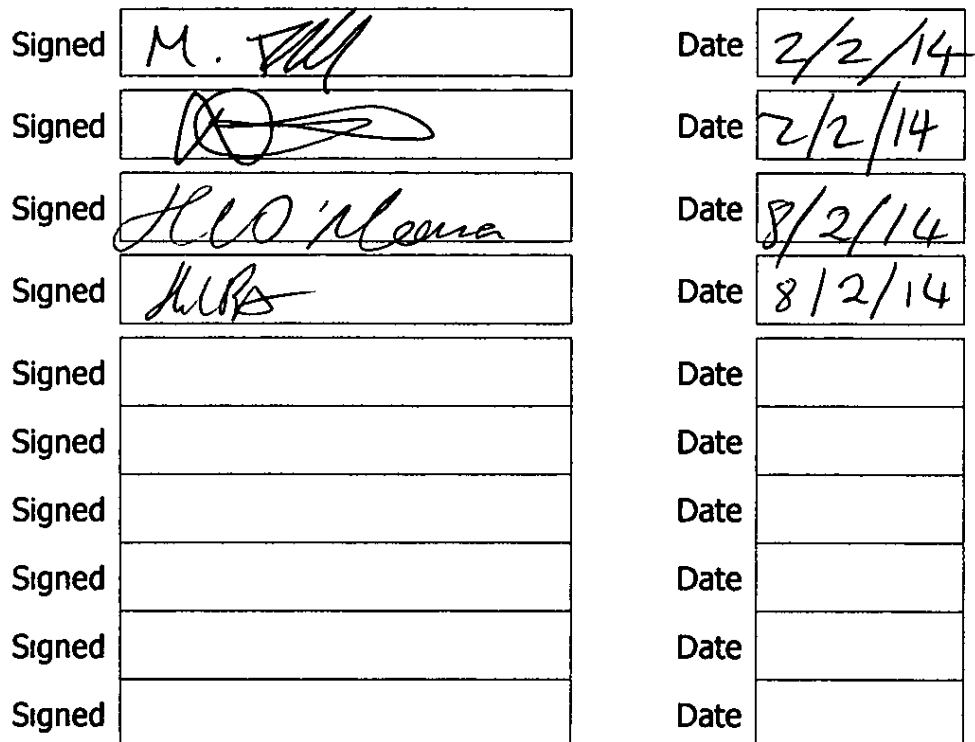 Signed M. Date 2/2/14
Signed Date 2/2/14
Signed Date 8/2/14
Signed Date 8/2/14
Signed Date
Signed Date
Signed Date
Signed Date
Signed Date
Signed Date